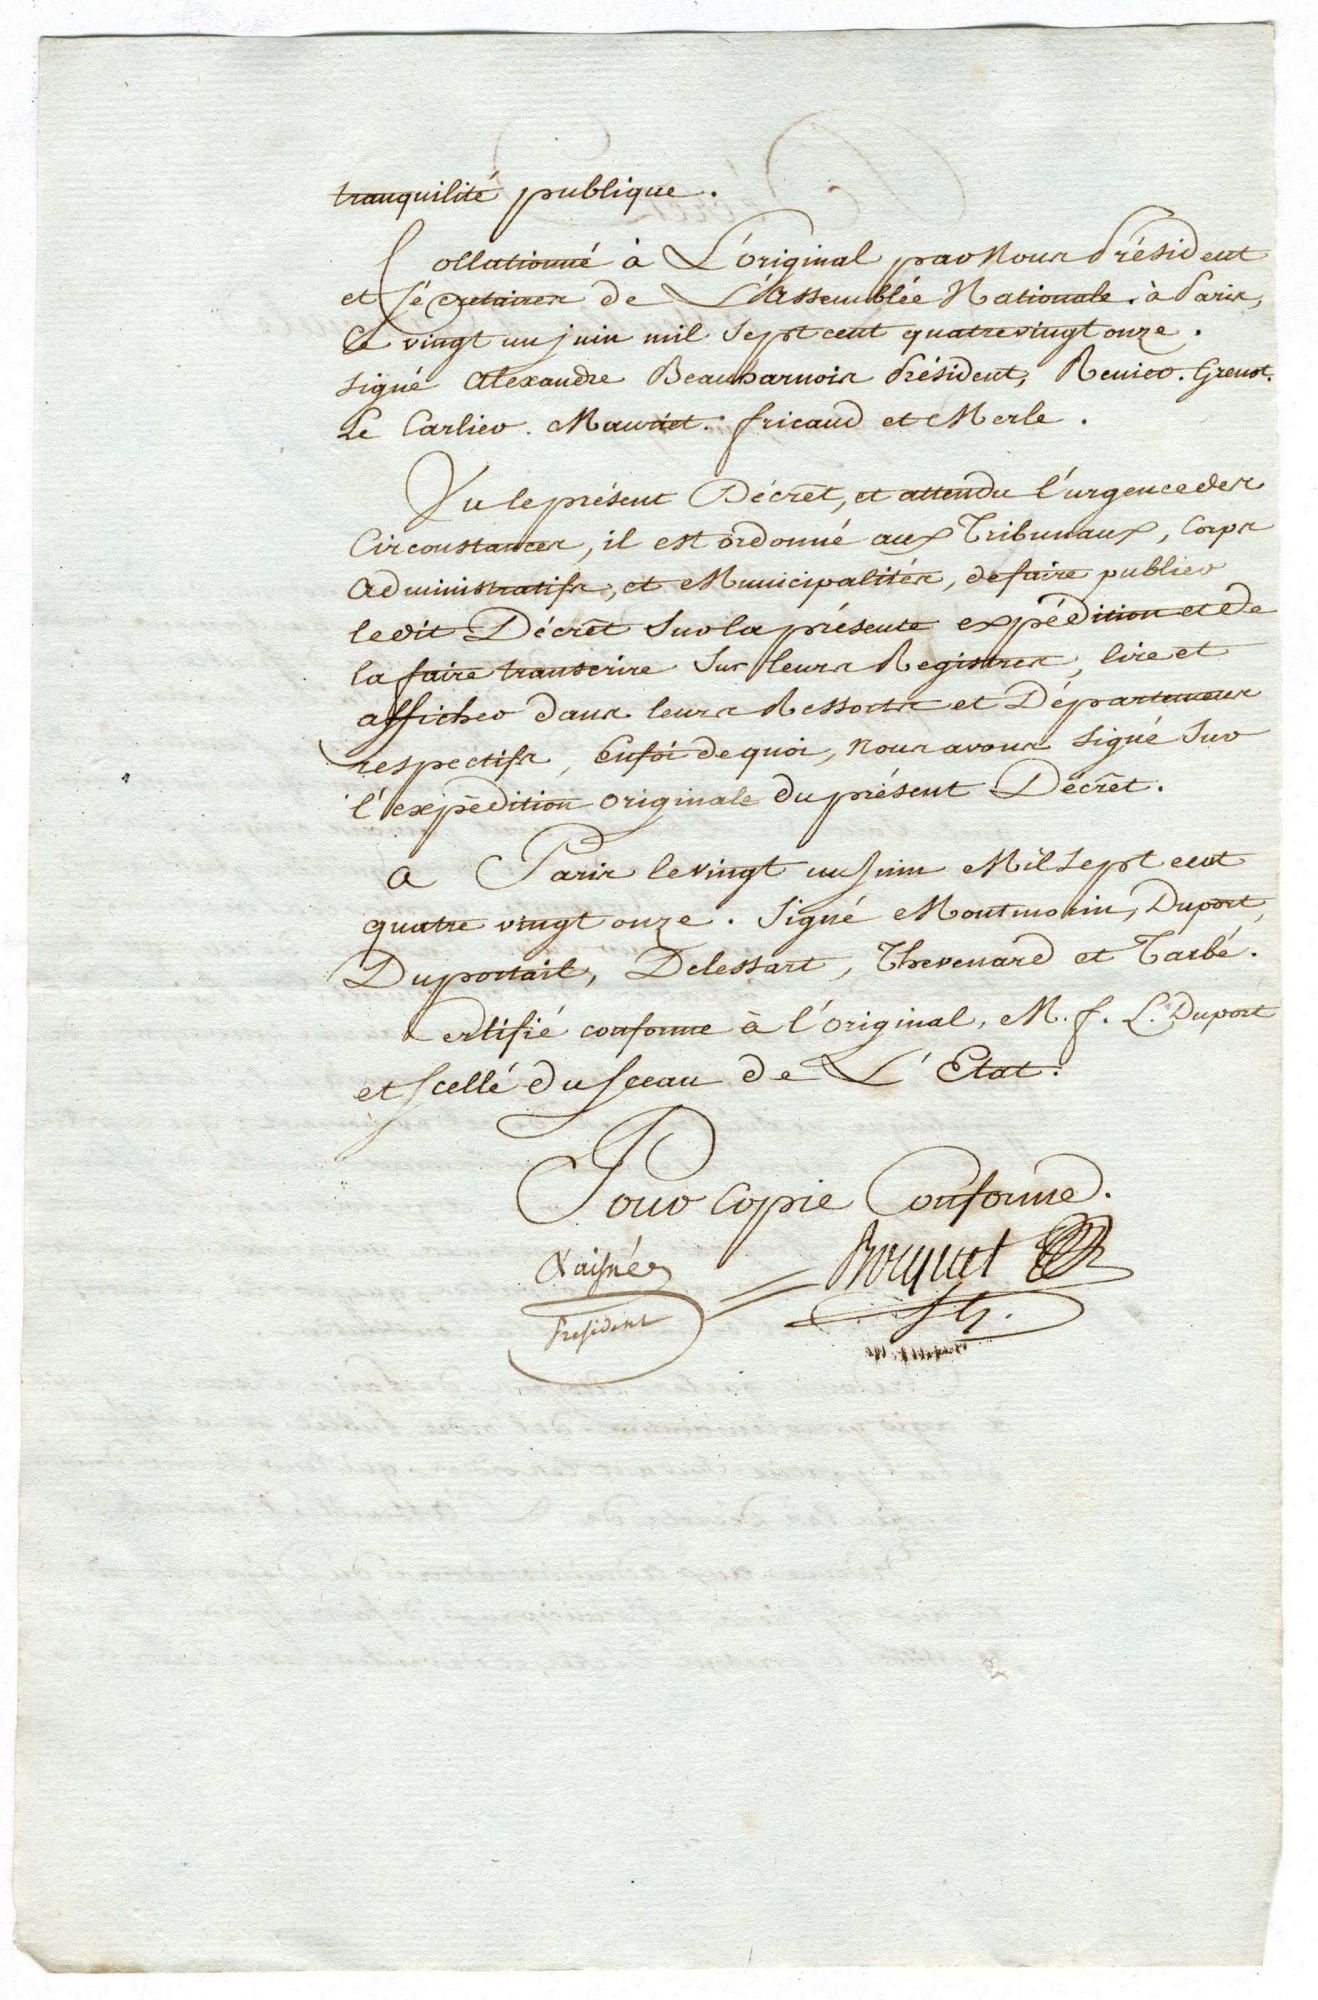 tranquilité publique.
Collationné à L'original par Nous Président
et Sécretaires de L'Assemblée Nationale. à Paris,
Le vingt un juin mil sept cent quatre vingt onze.
signé Alexandre Beauharnois Président, Renier. Grenot.
Le Carlier. Mauriet. fricaud et Merle.
Vu le présent Décrêt, et attendu l'urgence des
Circonstances, il est ordonné aux Tribunaux, Corps
administratifs, et Municipalités, de faire publier
ledit Décrêt Sur la présente expédition et de
la faire transcrire Sur leurs Registres, lire et
afficher dans leurs Ressorts et Départemens
respectifs, Enfoi de quoi, nous avons signé Sur
l'expédition originale du présent Décrêt.
A Paris le vingt un Juin Mil Sept cent
quatre vingt onze. Signé Montmorin, Duport,
Duportail, Delessart, Thevenard et Tarbé.
Certifié conforme à l'original, M. f. L. Duport
et Scellé du Sceau de L'Etat.
Pour Copie Conforme.
President